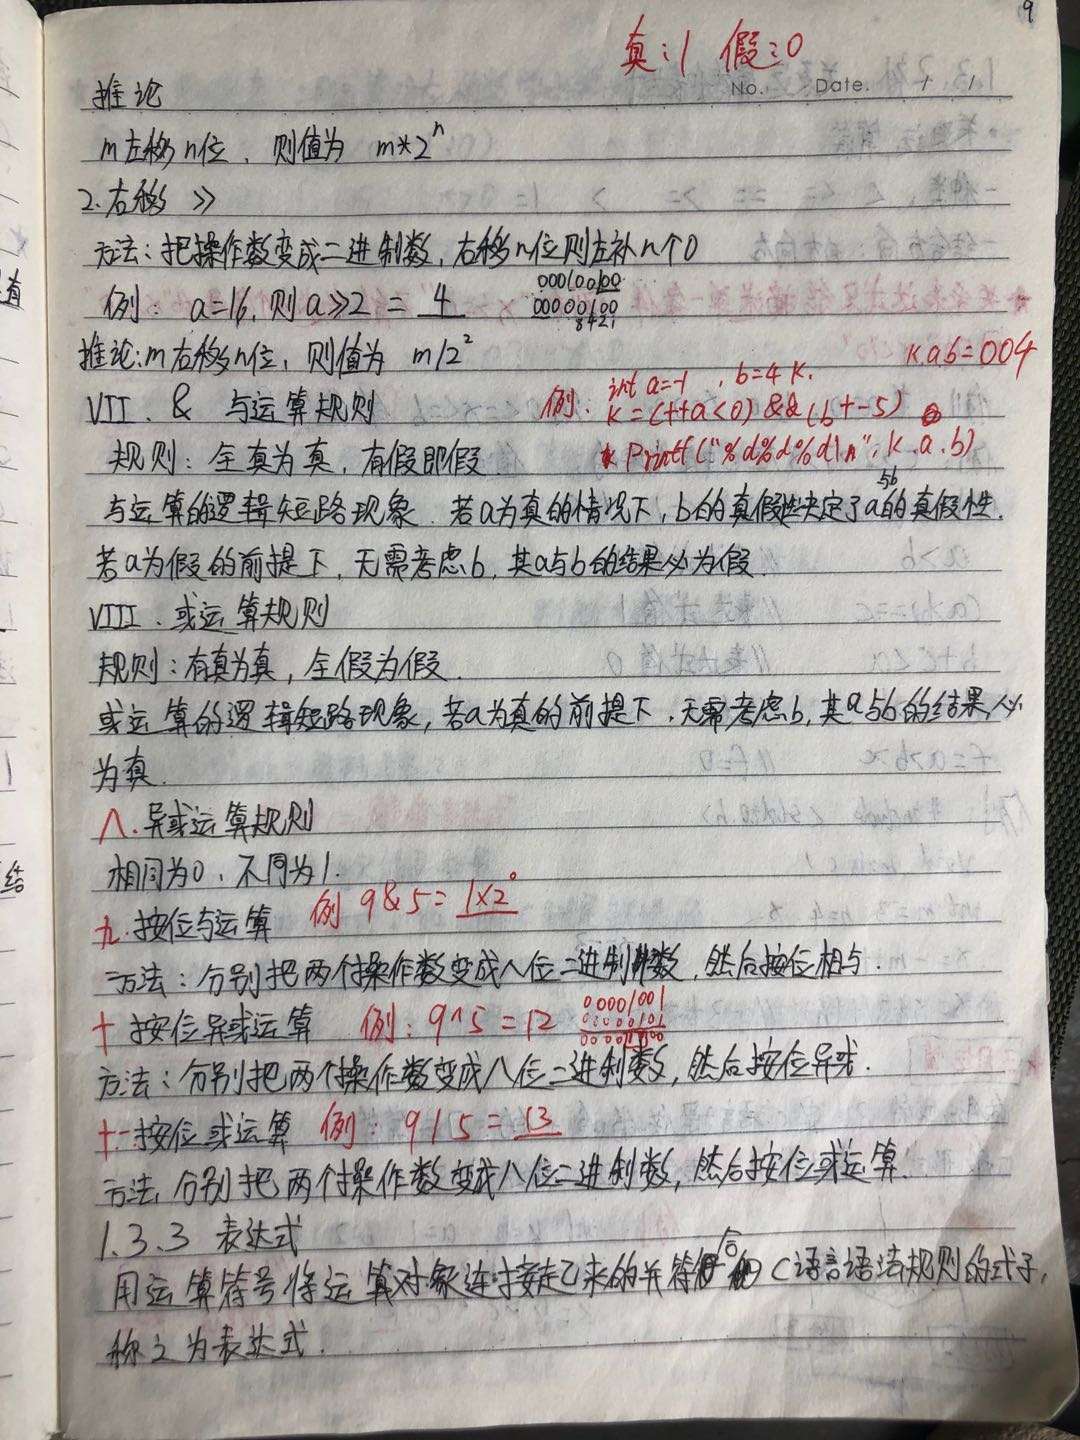 9
真:1 假:0
No. Date. / /
推论
m左移n位,则值为 m*2ⁿ
2.右移 >>
方法:把操作数变成二进制数,右移n位则左补n个0
00010000
例: a=16,则a>>2 = 4 00000100
8421
推论:m右移n位,则值为 m/2² k.a b=004
int a=-1 , b=4 k.
VII. & 与运算规则 例: k=(++a<0)&&(b+-5)
规则:全真为真,有假即假 Printf("%d%d%d\n",k.a.b)
与运算的逻辑短路现象 若a为真的情况下,b的真假性决定了a与b的真假性.
若a为假的前提下,无需考虑b,其a与b的结果必为假.
VIII.或运算规则
规则:有真为真,全假为假.
或运算的逻辑短路现象,若a为真的前提下,无需考虑b,其a与b的结果必
为真.
八.异或运算规则
相同为0,不同为1.
九.按位与运算 例 9&5=1x2⁰
方法:分别把两个操作数变成八位二进制数,然后按位相与.
00001001
十 按位异或运算 例:9^5=12 00000101
00001100
方法:分别把两个操作数变成八位二进制数,然后按位异或.
十一按位或运算 例:9|5=13
方法 分别把两个操作数变成八位二进制数,然后按位或运算.
1.3.3 表达式
用运算符号将运算对象连接起来的并符合的C语言语法规则的式子,
称之为表达式.